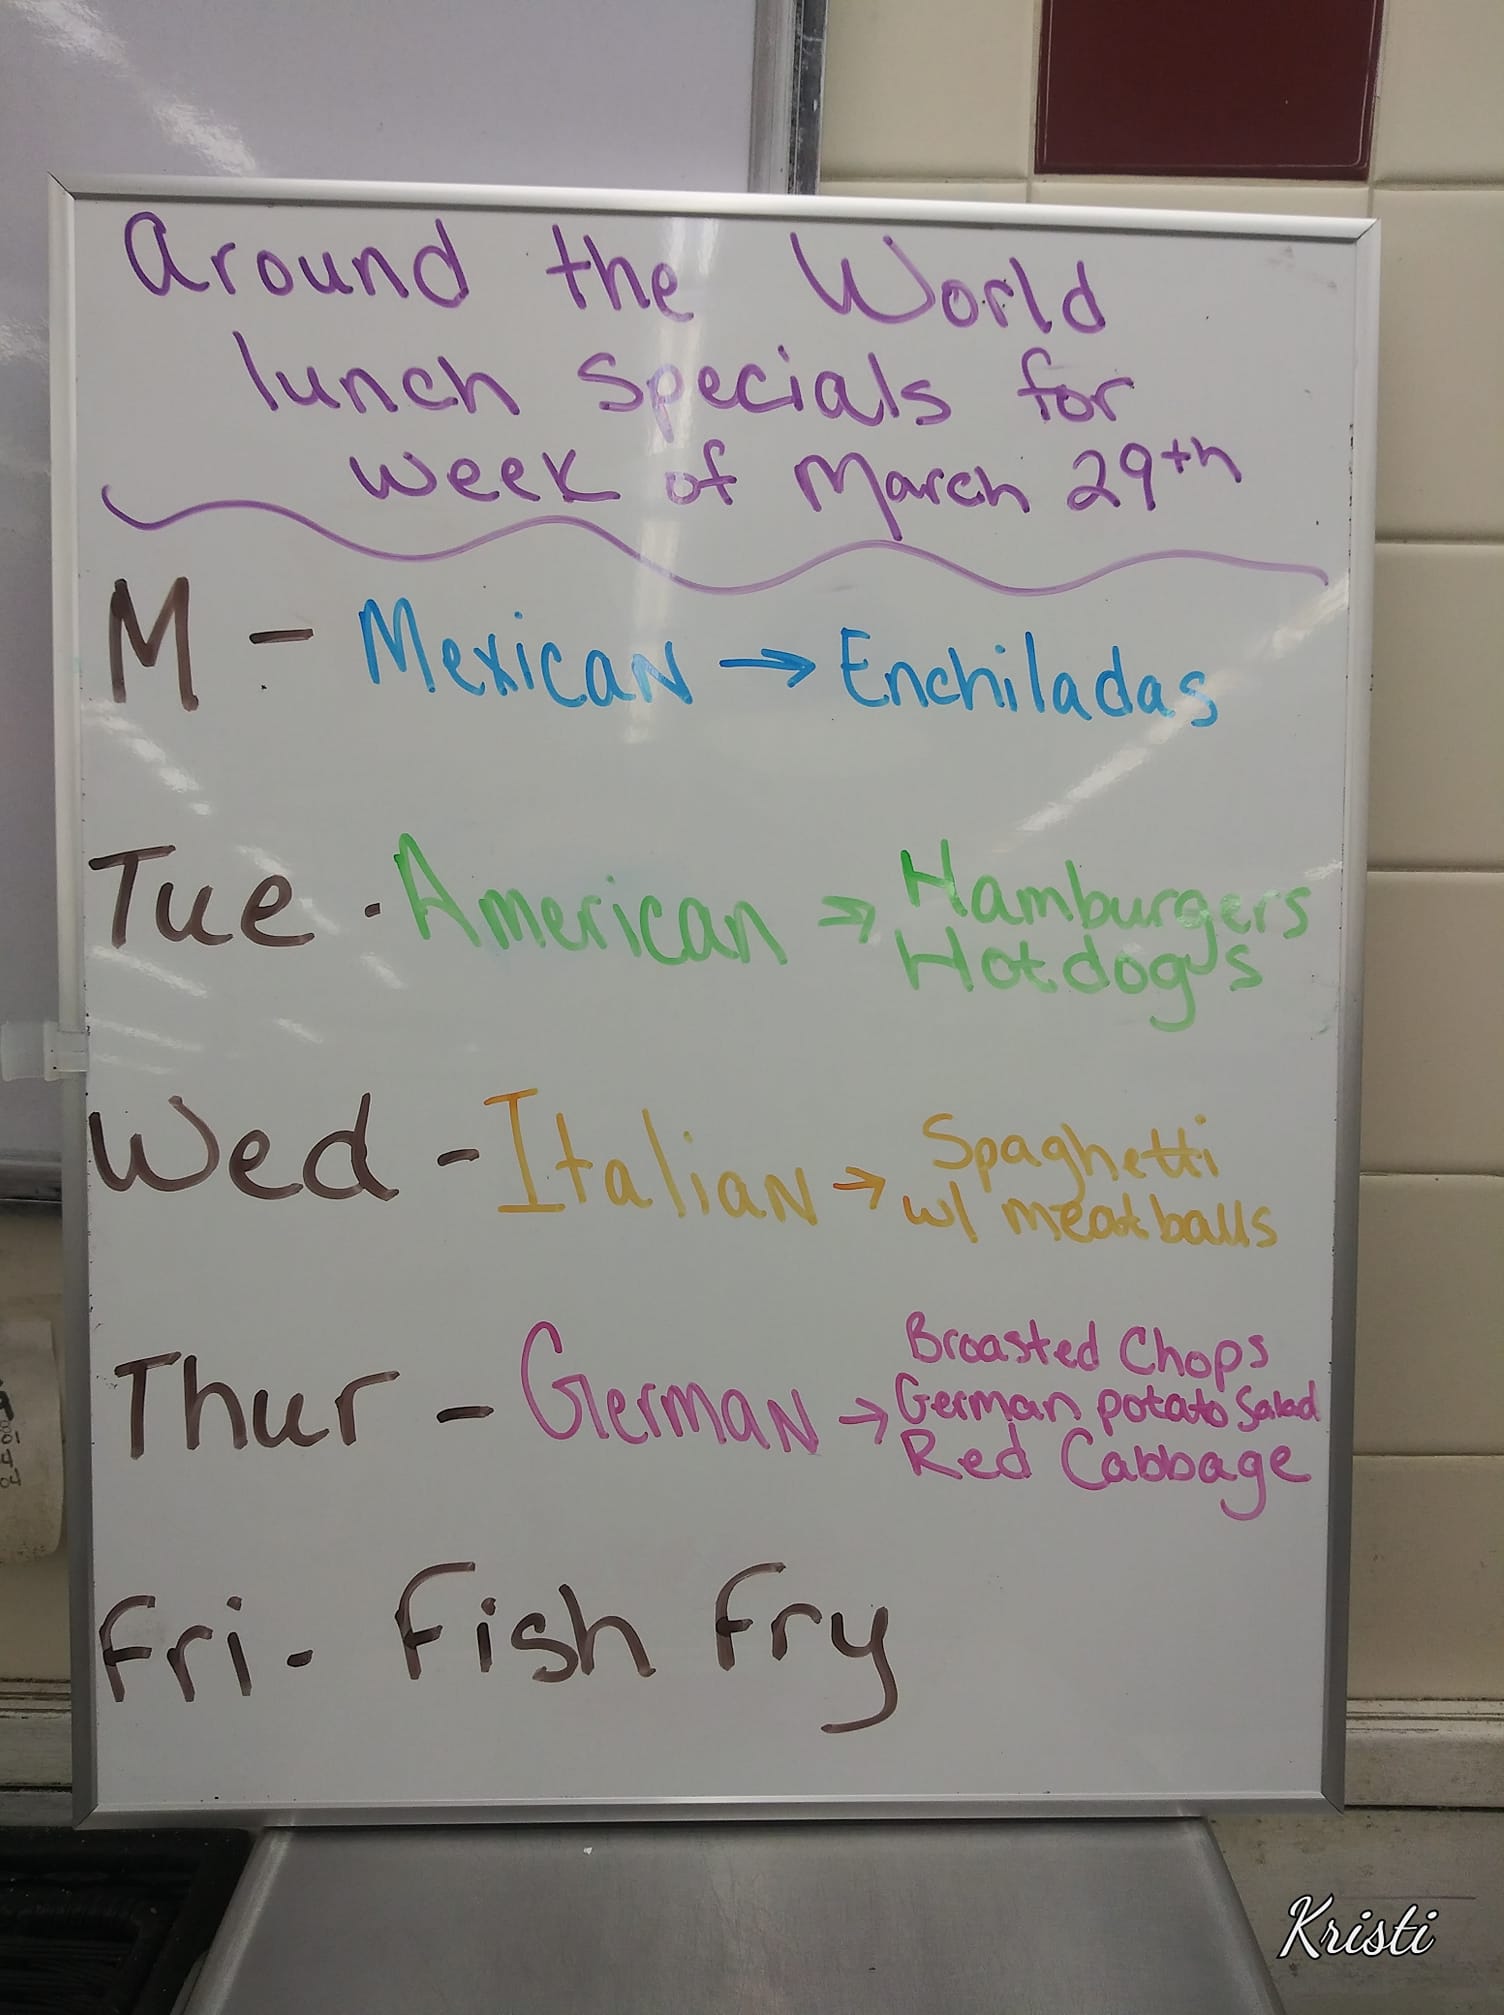 Around the World
lunch specials for
week of March 29th
M - Mexican → Enchiladas
Tue - American → Hamburgers
Hotdogs
Wed - Italian → Spaghetti
w/ meatballs
Thur - German → Broasted Chops
German potato Salad
Red Cabbage
Fri - Fish Fry
Kristi